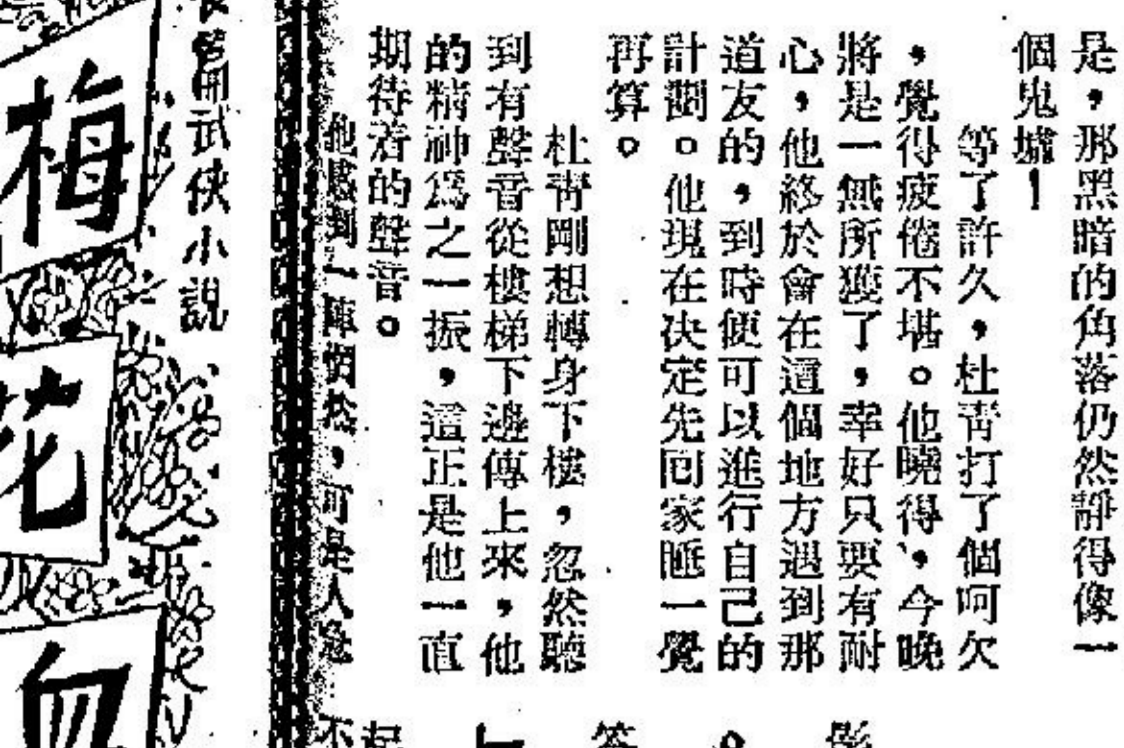 是，那黑暗的角落仍然靜得像一
個鬼墟！
等了許久，杜靑打了個呵欠
，覺得疲倦不堪。他曉得，今晚
將是一無所獲了，幸好只要有耐
心，他終於會在這個地方遇到那
道友的，到時便可以進行自己的
計劃。他現在決定先囘家睡一覺
再算。
杜靑剛想轉身下樓，忽然聽
到有聲音從樓梯下邊傳上來，他
的精神爲之一振，這正是他一直
期待着的聲音。
他感到一陣悄然，可是人急
長篇武俠小說
梅花血